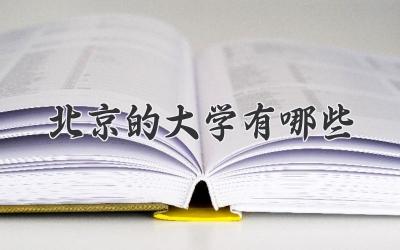 北京的大学有哪些